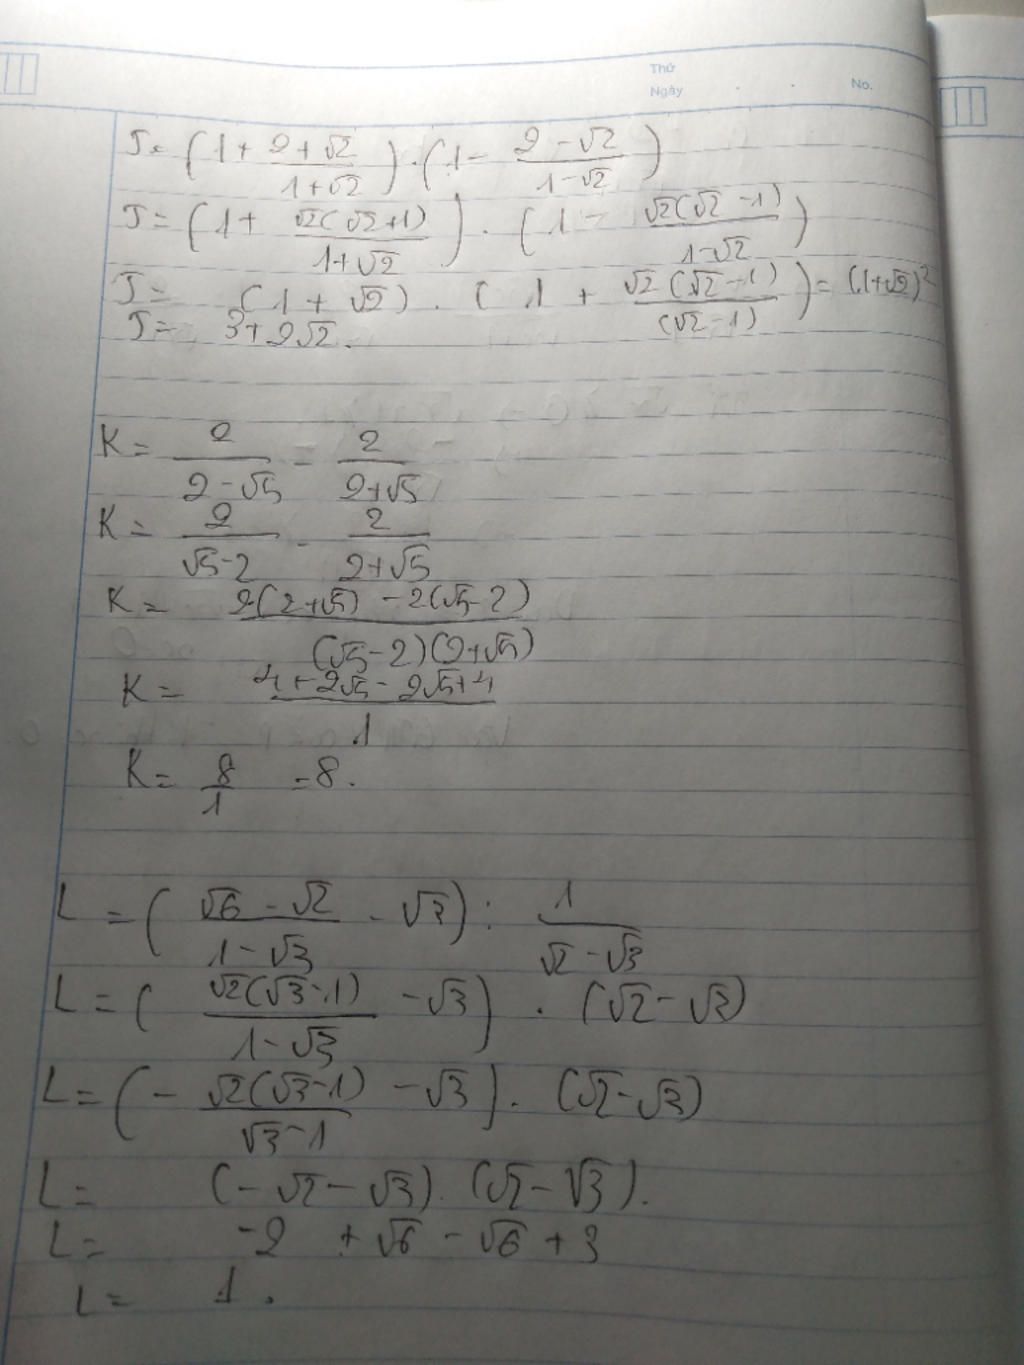 Thứ
Ngày . . No.
J = (1 + (2 + √2)/(1 + √2)) . (1 - (2 - √2)/(1 - √2))
J = (1 + √2(√2 + 1)/(1 + √2)) . (1 - √2(√2 - 1)/(1 - √2))
J = (1 + √2) . (1 + √2(√2 - 1)/(√2 - 1)) = (1 + √2)²
J = 3 + 2√2.
K = 2/(2 - √5) - 2/(2 + √5)
K = 2/(√5 - 2) - 2/(2 + √5)
K = (2(2 + √5) - 2(√5 - 2))/((√5 - 2)(2 + √5))
K = (4 + 2√5 - 2√5 + 4)/1
K = 8/1 = 8.
L = ((√6 - √2)/(1 - √3) - √3) : 1/(√2 - √3)
L = (√2(√3 - 1)/(1 - √3) - √3) . (√2 - √3)
L = (- √2(√3 - 1)/(√3 - 1) - √3) . (√2 - √3)
L = (- √2 - √3) . (√2 - √3).
L = -2 + √6 - √6 + 3
L = 1.